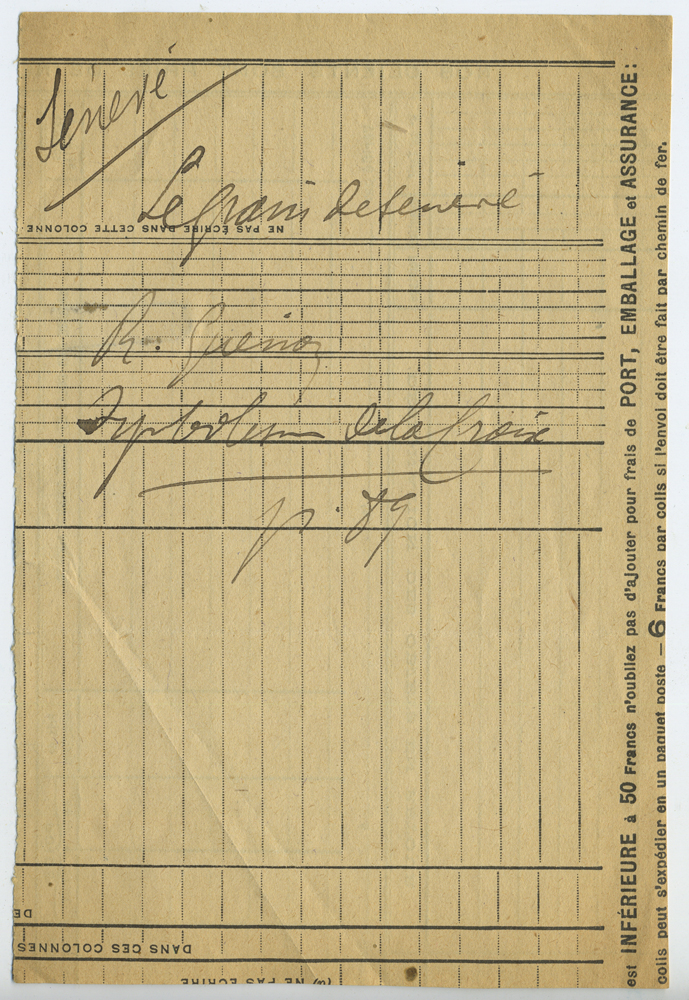 Sénevé
Le grain de sénevé
NE PAS ÉCRIRE DANS CETTE COLONNE
R. Guénon
Symbolisme de la Croix
p. 89
DE
DANS CES COLONNES
(a) NE PAS ÉCRIRE
est INFÉRIEURE à 50 Francs n'oubliez pas d'ajouter pour frais de PORT, EMBALLAGE et ASSURANCE:
colis peut s'expédier en un paquet poste — 6 Francs par colis si l'envoi doit être fait par chemin de fer.